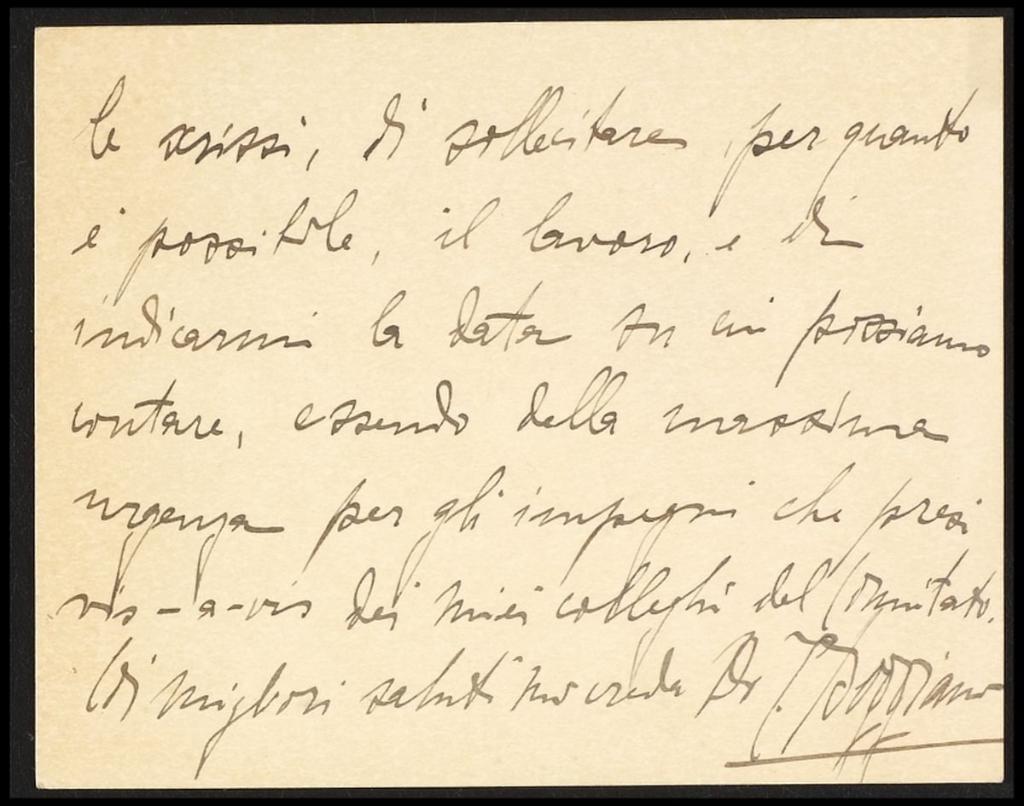 le scrissi, di sollecitare, per quanto
è possibile, il lavoro, e di
indicarmi la data su cui possiamo
contare, essendo della massima
urgenza per gli impegni che presi
vis-a-vis dei miei colleghi del Comitato.
Coi migliori saluti mi creda